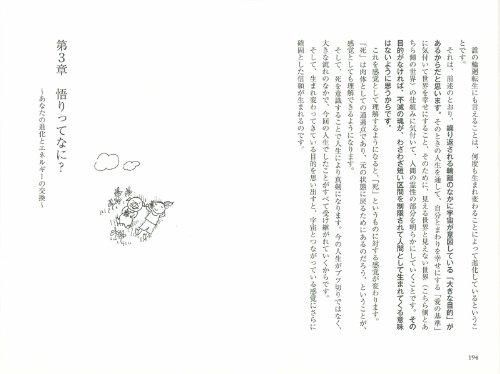 誰の輪廻転生にも言えることは、何度も生まれ変わることによって進化しているというこ
とです。
それは、前述のとおり、繰り返される輪廻のなかに宇宙が意図している「大きな目的」が
あるからだと思います。そのときの人生を通して、自分とまわりを幸せにする「愛の基準」
に気付いて世界を幸せにすること、そのために、見える世界と見えない世界(こちら側とあ
ちら側の世界)の仕組みに気付いて、人間の霊性の部分を明らかにしていくことです。その
目的がなければ、不滅の魂が、わざわざ短い区間を制限されて人間として生まれてくる意味
はないように思うからです。
これを感覚として理解するようになると、「死」というものに対する感覚が変わります。
「死」は肉体としての通過点であり、元の状態に戻るためにあるのだろう、ということが、
感覚としても理解できるようになります。
そして、死を意識することで人生により真剣になります。今の人生がブツ切りではなく、
大きな流れのなかで、今回の人生でしたことがすべて受け継がれていくからです。
そして、生まれ変わってきている目的を思い出すと、宇宙とつながっている感覚にさらに
確固とした信頼が生まれるのです。
194
第3章 悟りってなに?
〜あなたの進化とエネルギーの交換〜